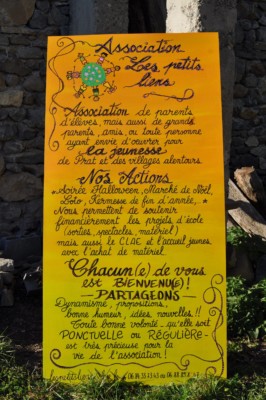 Association
Les petits
liens
Association de parents
d'élèves, mais aussi de grands
parents, amis, ou toute personne
ayant envie d'œuvrer pour
la jeunesse
de Prat et des villages alentours.
Nos Actions
* Soirée Halloween, Marché de Noël,
Loto, Kermesse de fin d'année,...*
Nous permettent de soutenir
financièrement les projets d'école
(sorties, spectacles, matériel)
mais aussi le CLAE et l'accueil jeunes
avec l'achat de matériel.
Chacun(e) de vous
est BIENVENU(E)!
PARTAGEONS
Dynamisme, propositions,
bonne humeur, idées, nouvelles!!
Toute bonne volonté - qu'elle soit
PONCTUELLE ou RÉGULIÈRE -
est très précieuse pour la
vie de l'association!